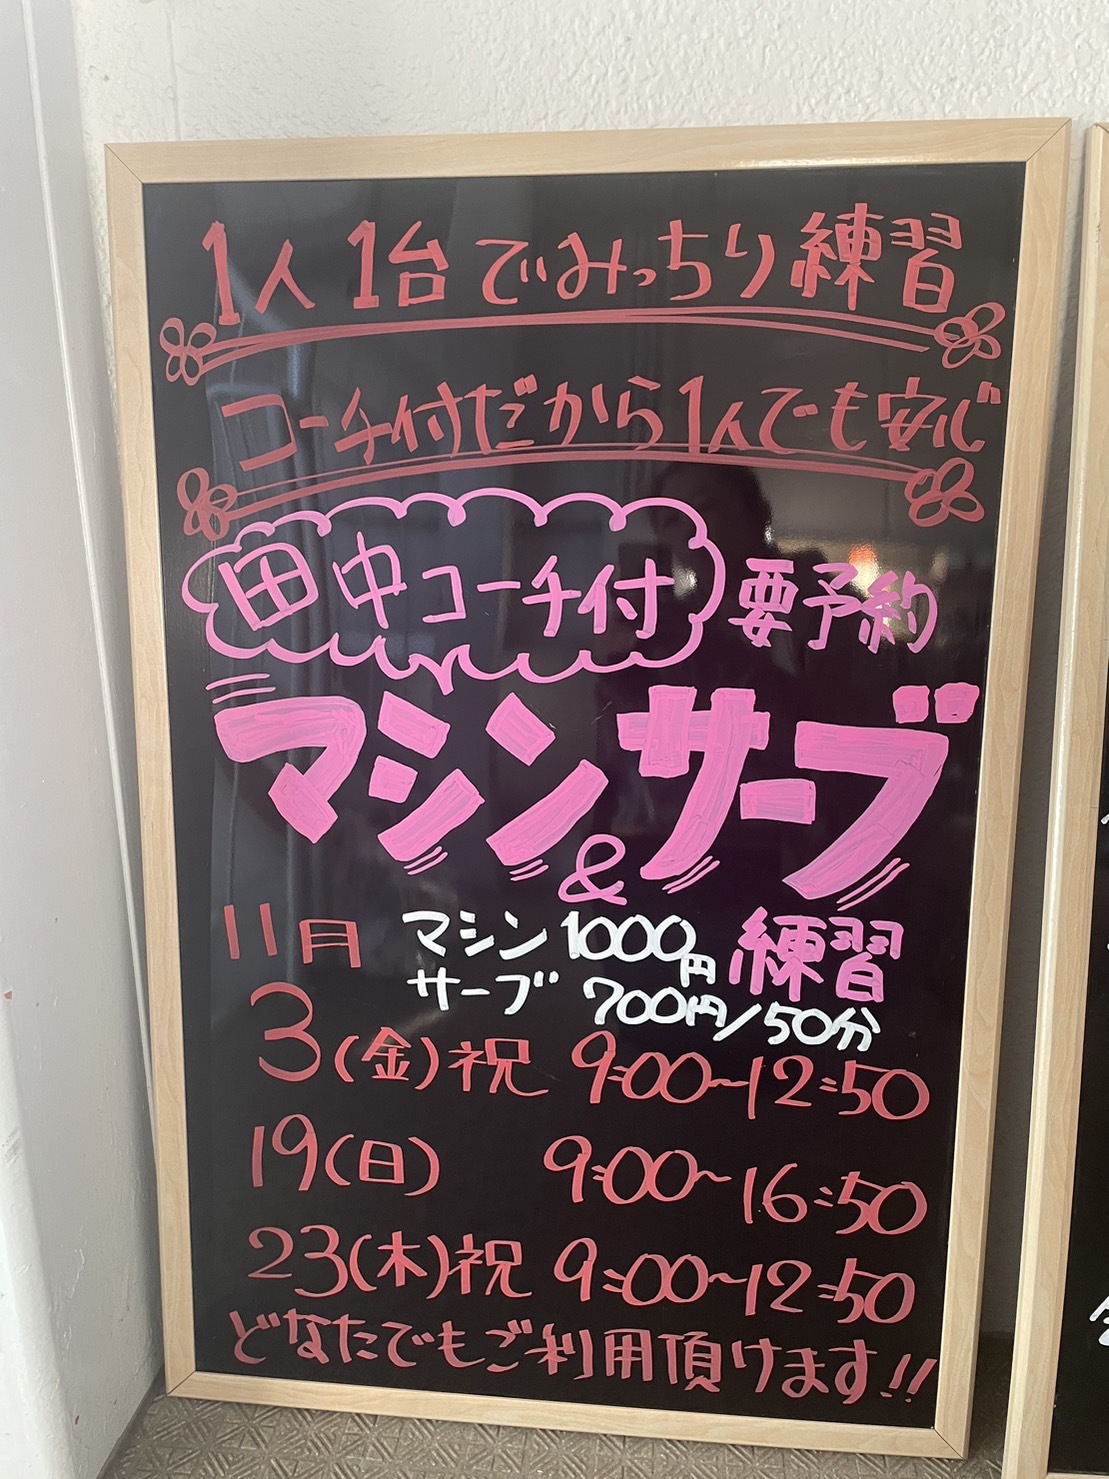 1人1台でみっちり練習
コーチ付だから1人でも安心
田中コーチ付 要予約
マシン&サーブ
練習
11月 マシン 1000円
サーブ 700円/50分
3(金)祝 9:00〜12:50
19(日) 9:00〜16:50
23(木)祝 9:00〜12:50
どなたでもご利用頂けます!!